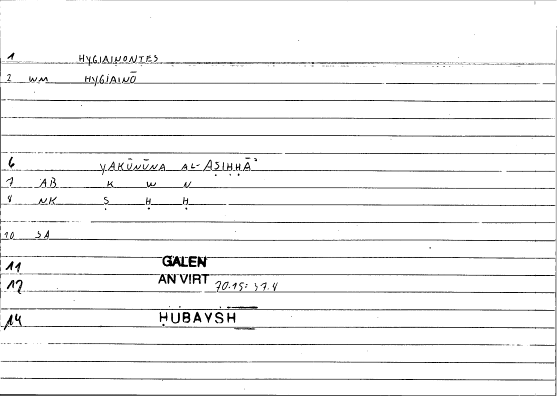 1 HYGIAINONTES
2 WM HYGIAINŌ
6 YAKŪNŪNA AL-AṢIḤḤĀʾ
7 AB K W N
8 NK Ṣ Ḥ Ḥ
10 SA
11 GALEN
12 AN VIRT 70.15: 37.4
14 ḤUBAYSH